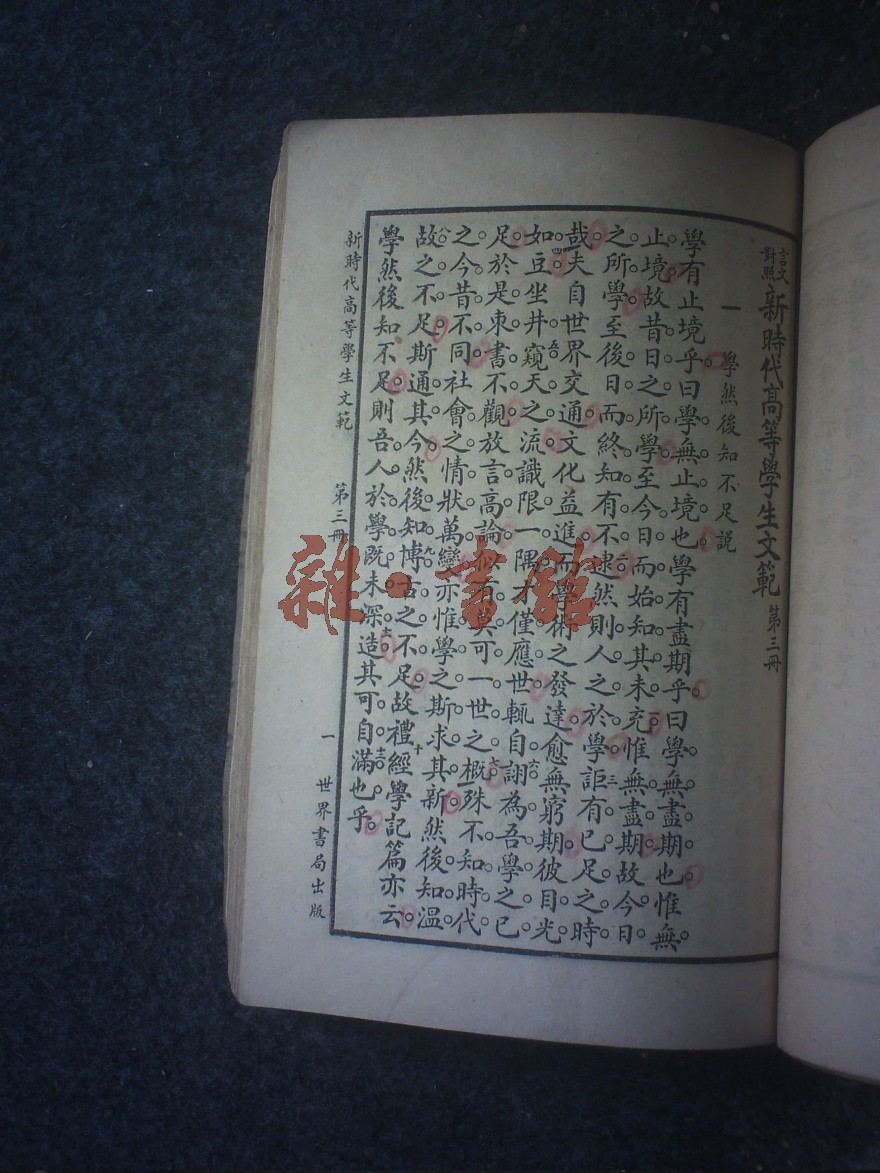 言文對照 新時代高等學生文範 第三冊
一 學然後知不足說
學有止境乎。曰學無止境也。學有盡期乎。曰學無盡期也。惟無
止境。故昔日之所學。至今日而始知其未充。惟無盡期。故今日
之所學。至後日而終知有不逮。二然則人之於學。詎三有已足之時
哉。夫自世界交通。文化益進。而學術之發達。愈無窮期。彼目光
如豆。四坐井窺天五之流。識限一隅。不僅應世。輒自詡六為吾學之已
足。於是束書不觀。放言高論。似有莫可一世之概。七殊不知時代
之今昔不同。社會之情狀萬變。亦惟學之斯求其新。然後知溫
故八之不足。斯通其今。然後知博古九之不足。故禮經十學記篇亦云。
學然後知不足。則吾人於學。既未深造。十一其可自滿十二也乎。
新時代高等學生文範 第三冊 一 世界書局出版
雜·書館